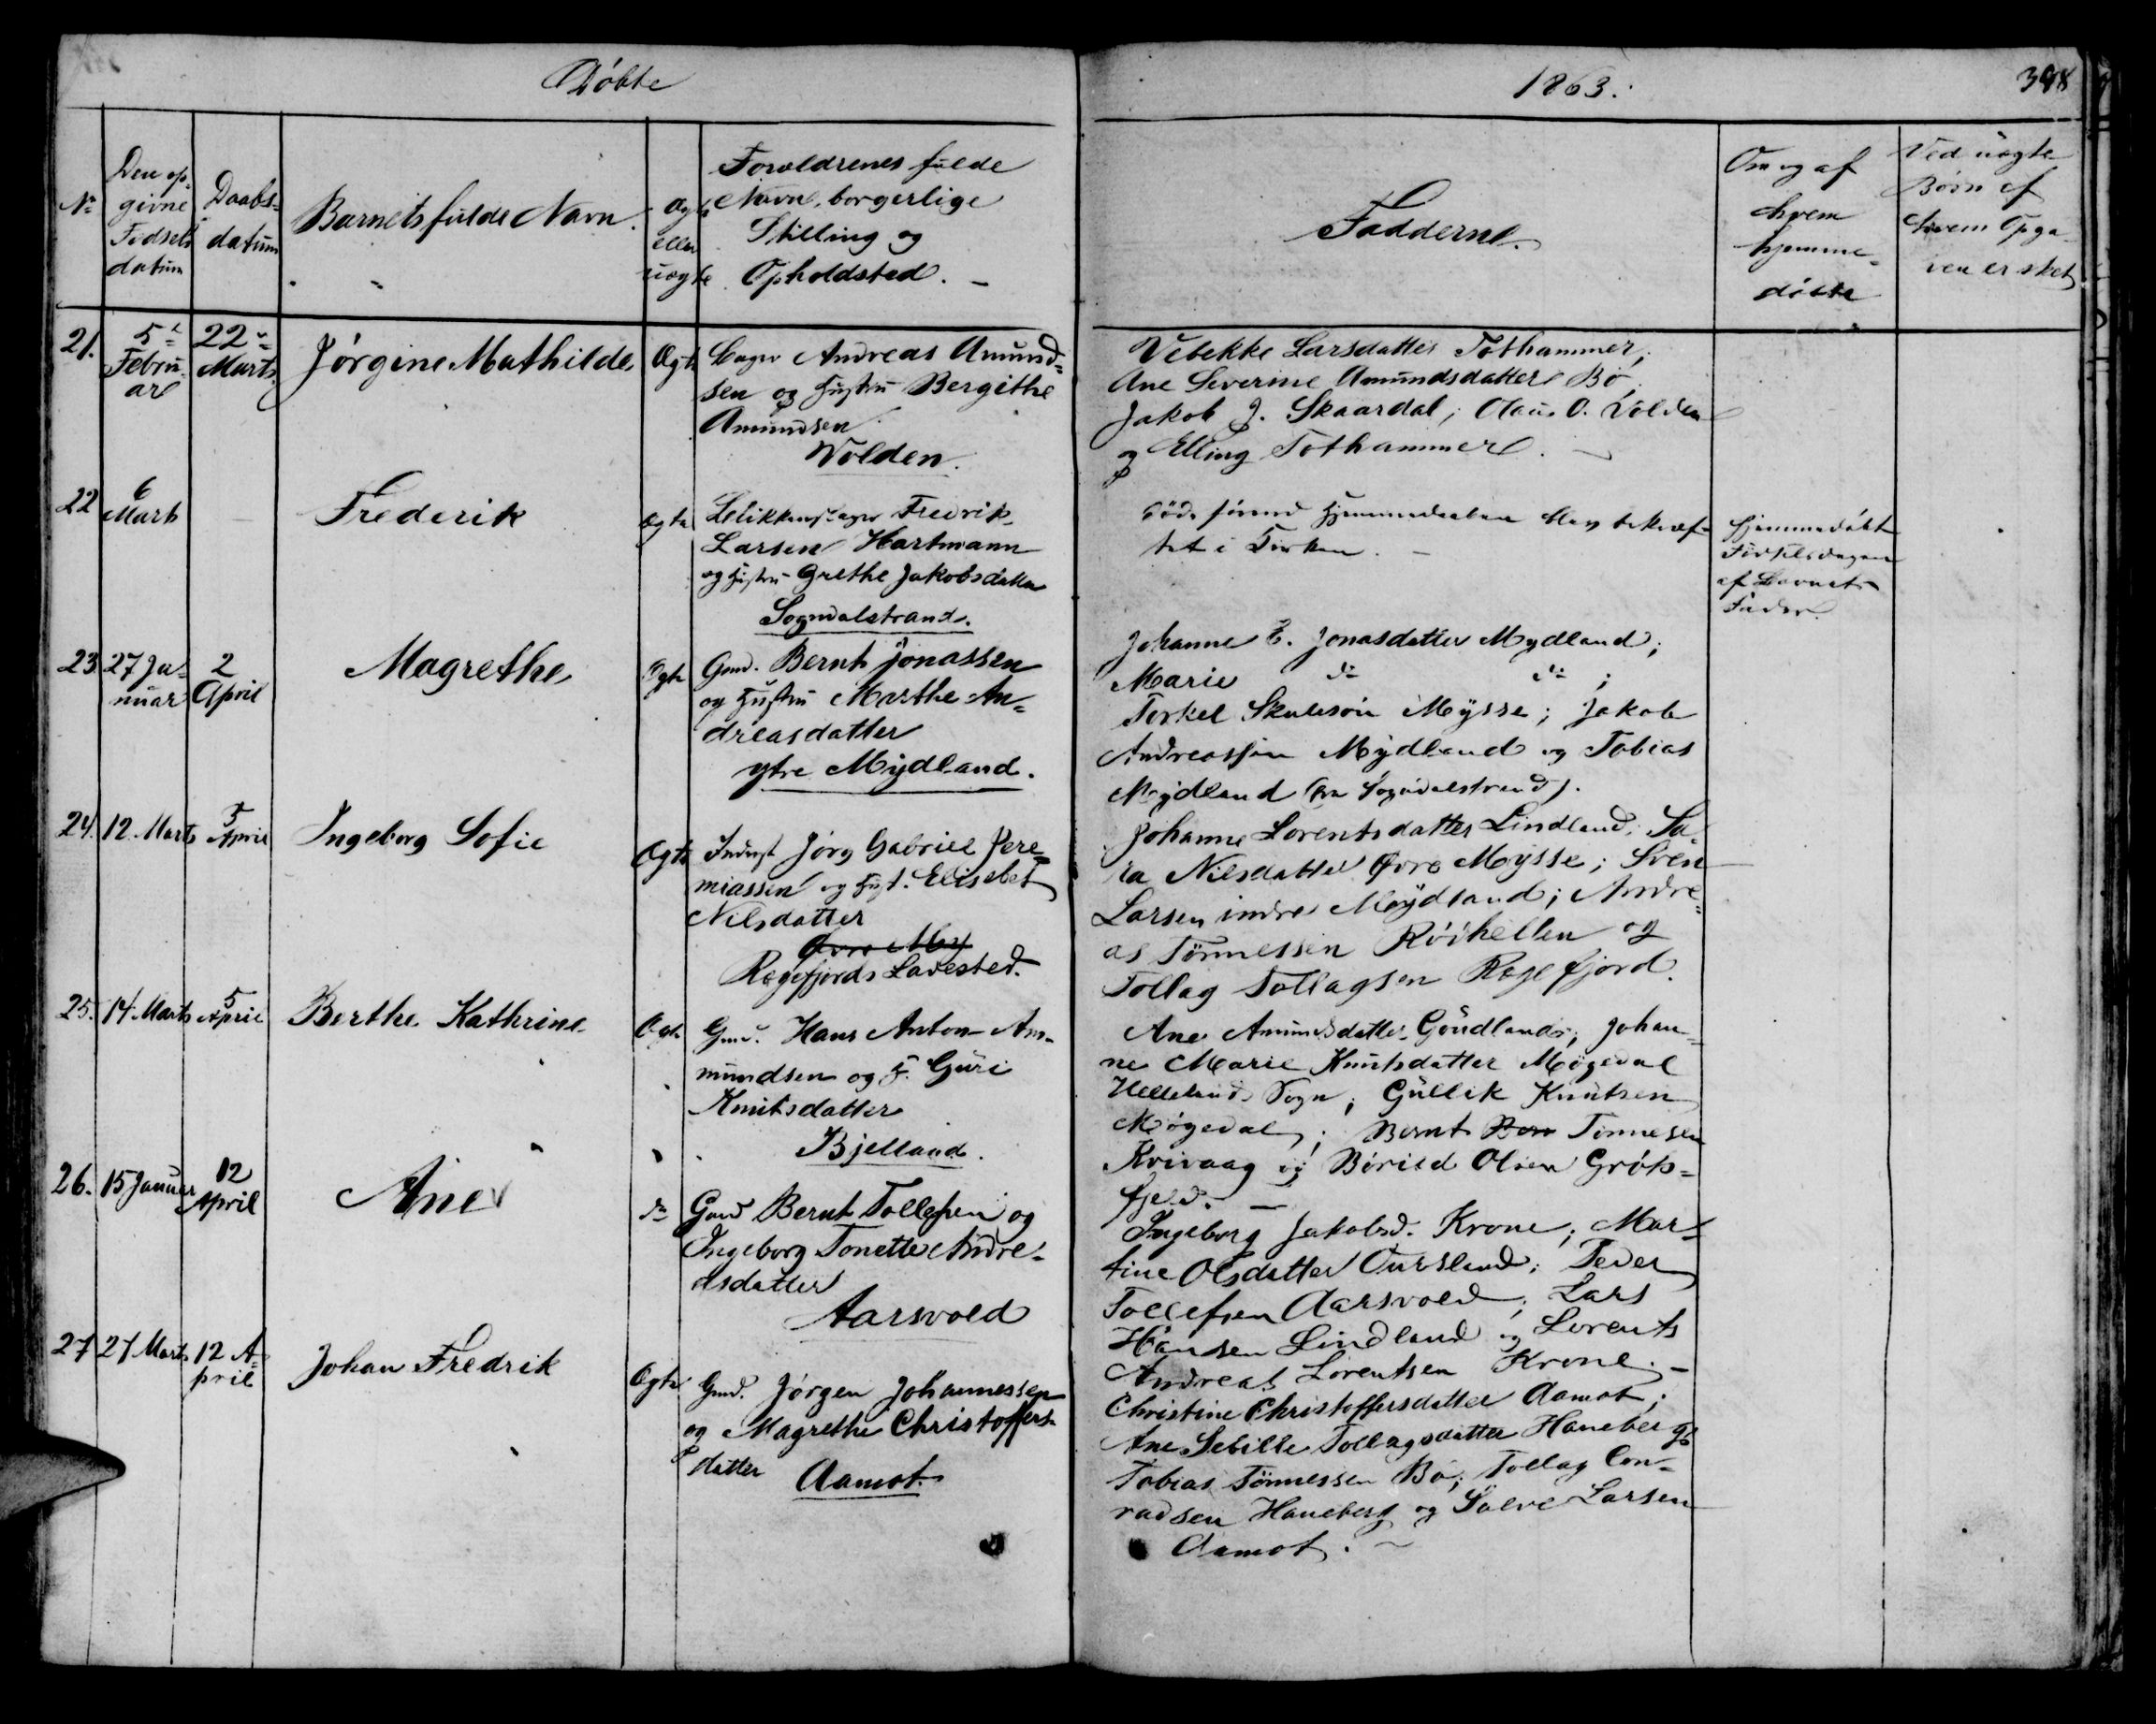 Døbte
1863.
398
No
Den op-
givne
Fødsels
datum
Daabs-
datum
Barnets fulde Navn.
Ægte
eller
uægte
Forældrenes fulde
Navn, borgerlige
Stilling og
Opholdsted. -
Fadderne.
Om og af
hvem
hjemme-
døbte
Ved uægte
Børn af
hvem Opga-
ven er sket
21.
5te
Febru-
ar
22de
Marts
Jørgine Mathilde
Ægte
Andreas Amund-
sen og Hustru Bergithe
Amundsen
Wolden.
Vebekke Larsdatter Tothammer,
Ane Severine Amundsdatter Bø,
Jakob J. Skaardal; Claus O. Volden
og Elling Tothammer. -
22
6
Marts
Frederik
Ægte
Fredrik
Larsen Hartmann
og Hustru Grethe Jakobsdatter
Sogndalstrand.
Døde førend Hjemmedaaben blev bekræf-
tet i Kirken. -
Hjemmedøbt
Fødselsdagen
af Barnets
Fader.
23.
27 Ja-
nuar
2
April
Magrethe
Ægte
Gmd. Bernt Jonassen
og Hustru Marthe An-
dreasdatter
ytre Mydland.
Johanne E. Jonasdatter Mydland;
Marie do do ;
Torkel Skulesøn Mysse; Jakob
Andreassøn Mydland og Tobias
Mydland (fra Sogndalstrand).
24.
12. Marts
5
April
Ingeborg Sofie
Ægte
Inderst Jørg Gabriel Jere-
miassen og Hust. Elisebet
Nilsdatter
Øvre My
Rægefjords Ladested.
Johanne Lorentsdatter Lindland; Sa-
ra Nilsdatter Øvre Mysse; Sven
Larsen indre Mydland; Andre-
as Tønnessen Røihellen og
Tollag Tollagsen Rægefjord.
25.
14. Marts
5
April
Berthe Kathrine
Ægte
Gmd. Hans Anton Am-
mundsen og H. Guri
Knutsdatter
Bjelland.
Ane Amundsdatter Gondland; Johan-
ne Marie Knutsdatter Møgedal
Hellelands Sogn; Gullik Knutsen
Møgedal; Bernt Bern Tønnesen
Kvivaag og Børild Olsen Grøts-
fjeld. -
26.
15 Januar
12
April
Ane
do
Gmd Bernt Tollefsen og
Ingeborg Tonette Andre-
asdatter
Aarsvold
Ingeborg Jakobsd. Krone; Mar-
tine Olsdatter Oursland; Peder
Tollefsen Aarsvold; Lars
Hansen Lindland og Lorents
Andreas Lorentsen Krone. -
27
27 Marts
12 A-
pril
Johan Fredrik
Ægte
Gmd. Jørgen Johannessen
og Magrethe Christoffers-
datter
Aamot.
Christine Christoffersdatter Aamot;
Ane Sebille Tollagsdatter Haneberg;
Tobias Tønnessen Bø; Tollag Con-
radsen Haneberg og Sølve Larsen
Aamot. -